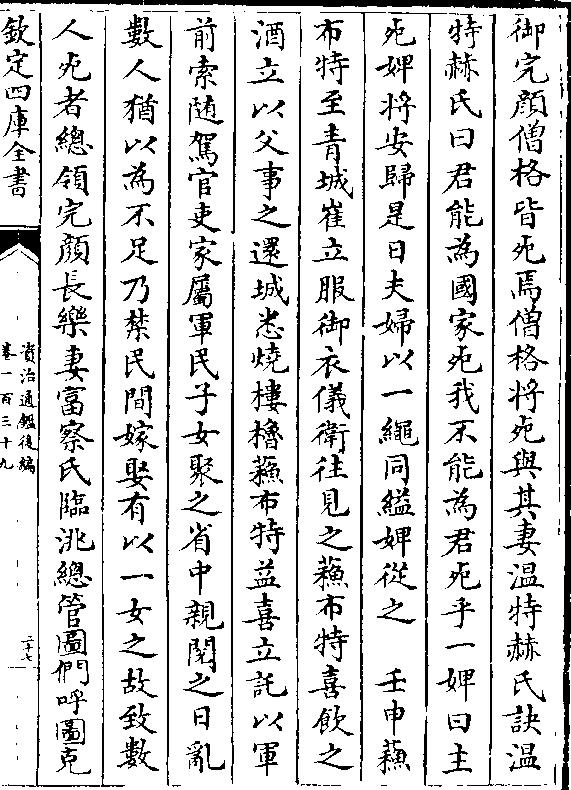 御完顔僧格皆死焉僧格將死與其妻温特赫氏訣温
特赫氏曰君能為國家死我不能為君死乎一婢曰主
死婢將安歸是日夫婦以一繩同縊婢從之　壬申蘓
布特至青城崔立服御衣儀衛往見之蘓布特喜飲之
酒立以父事之還城悉燒樓櫓蘓布特益喜立託以軍
前索随駕官吏家屬軍民子女聚之省中親閲之日亂
數人猶以為不足乃禁民間嫁娶有以一女之故致數
人死者總領完顔長樂妻富察氏臨洮總管圖們呼圖克
欽定四庫全書
資治通鑑後編
卷一百三十九
三十七